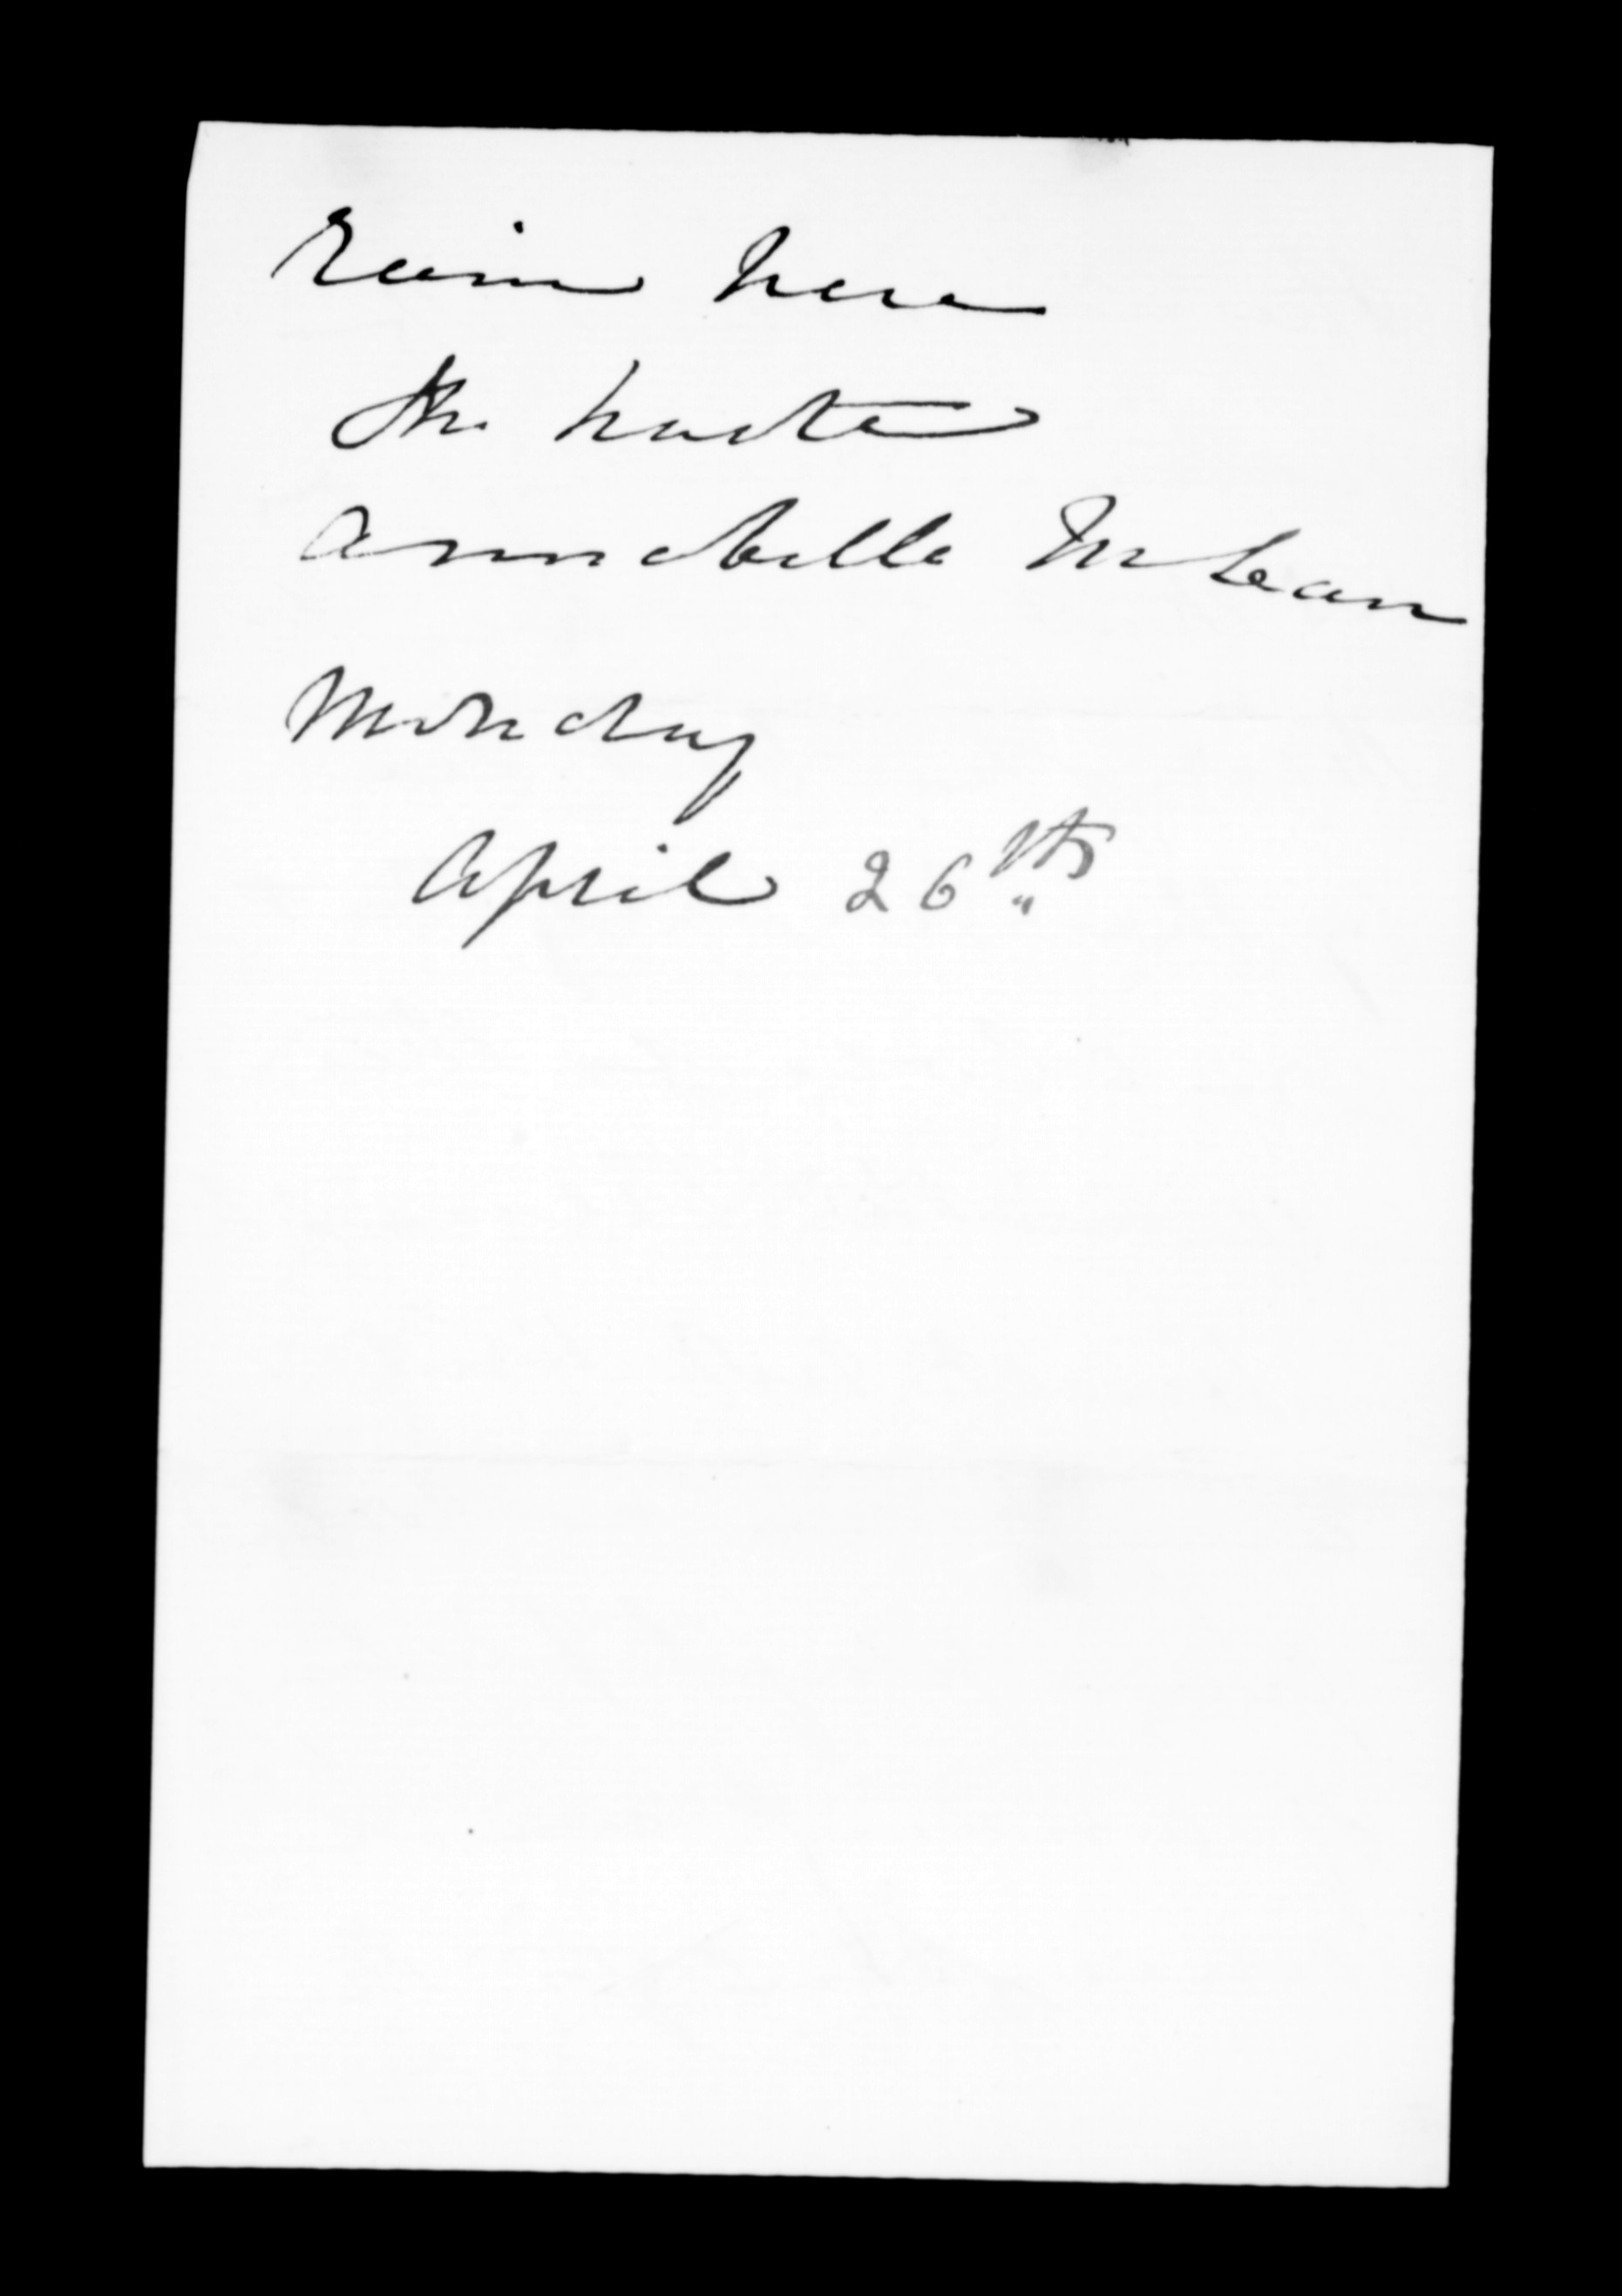 rain here
In haste
Annabella McLean
Monday
April 26th